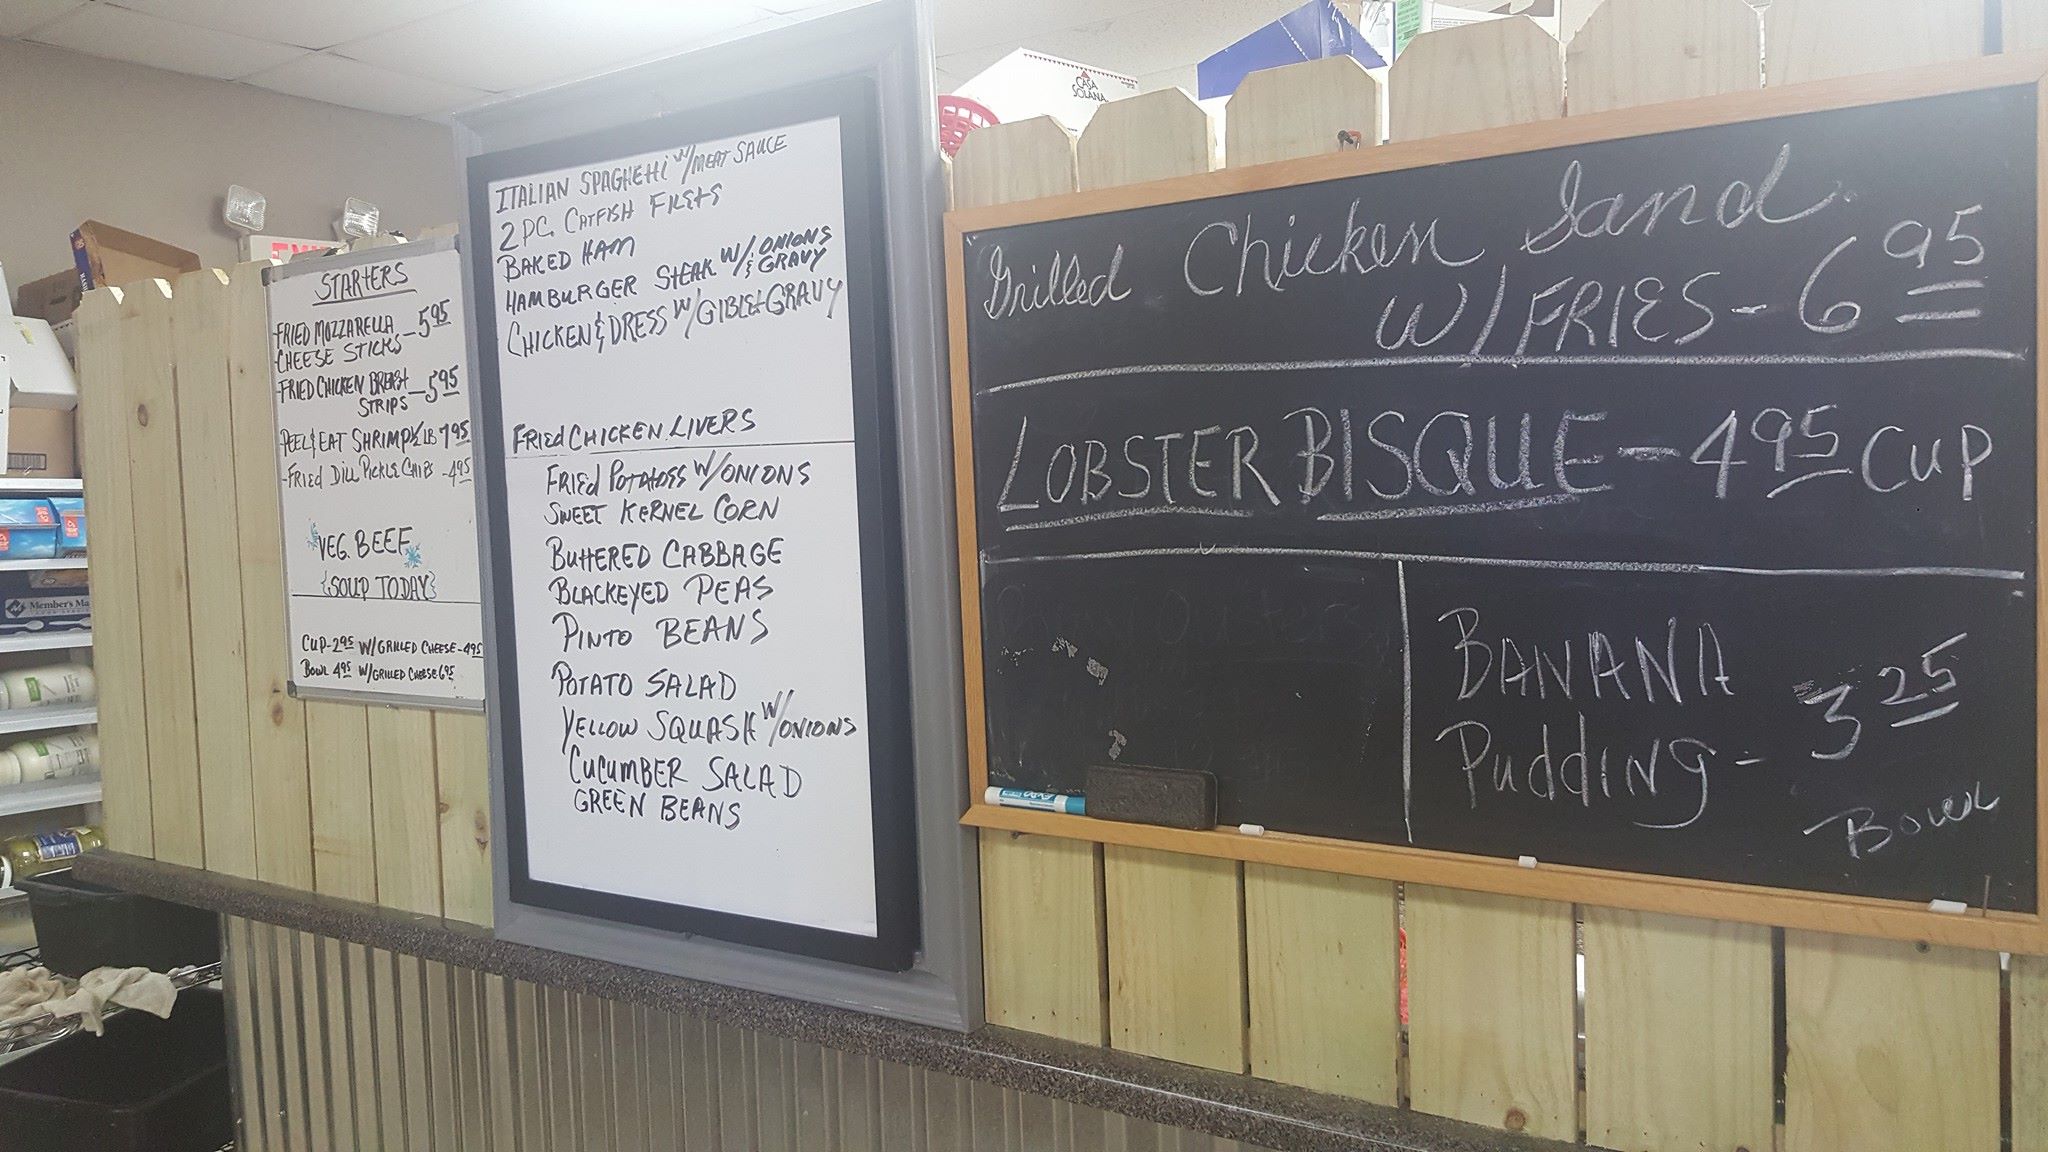 STARTERS
FRIED MOZZARELLA
CHEESE STICKS - 5 95
FRIED CHICKEN BREAST
STRIPS - 5 95
PEEL & EAT SHRIMP 1/2 LB 7 95
- FRIED DILL PICKLE CHIPS - 4 95
VEG. BEEF
{SOUP TODAY}
CUP - 2 95 W/GRILLED CHEESE - 4 95
BOWL 4 95 W/GRILLED CHEESE 6 95
ITALIAN SPAGHETTI W/MEAT SAUCE
2 PC. CATFISH FILETS
BAKED HAM
HAMBURGER STEAK W/ONIONS
& GRAVY
CHICKEN & DRESS W/GIBLET GRAVY
FRIED CHICKEN LIVERS
FRIED POTATOES W/ONIONS
SWEET KERNEL CORN
BUTTERED CABBAGE
BLACKEYED PEAS
PINTO BEANS
POTATO SALAD
YELLOW SQUASH W/ONIONS
CUCUMBER SALAD
GREEN BEANS
Grilled Chicken Sand.
W/FRIES - 6 95
LOBSTER BISQUE - 4 95 CUP
BANANA
Pudding - 3 25
Bowl
CASA
SOLANA
Member's Ma